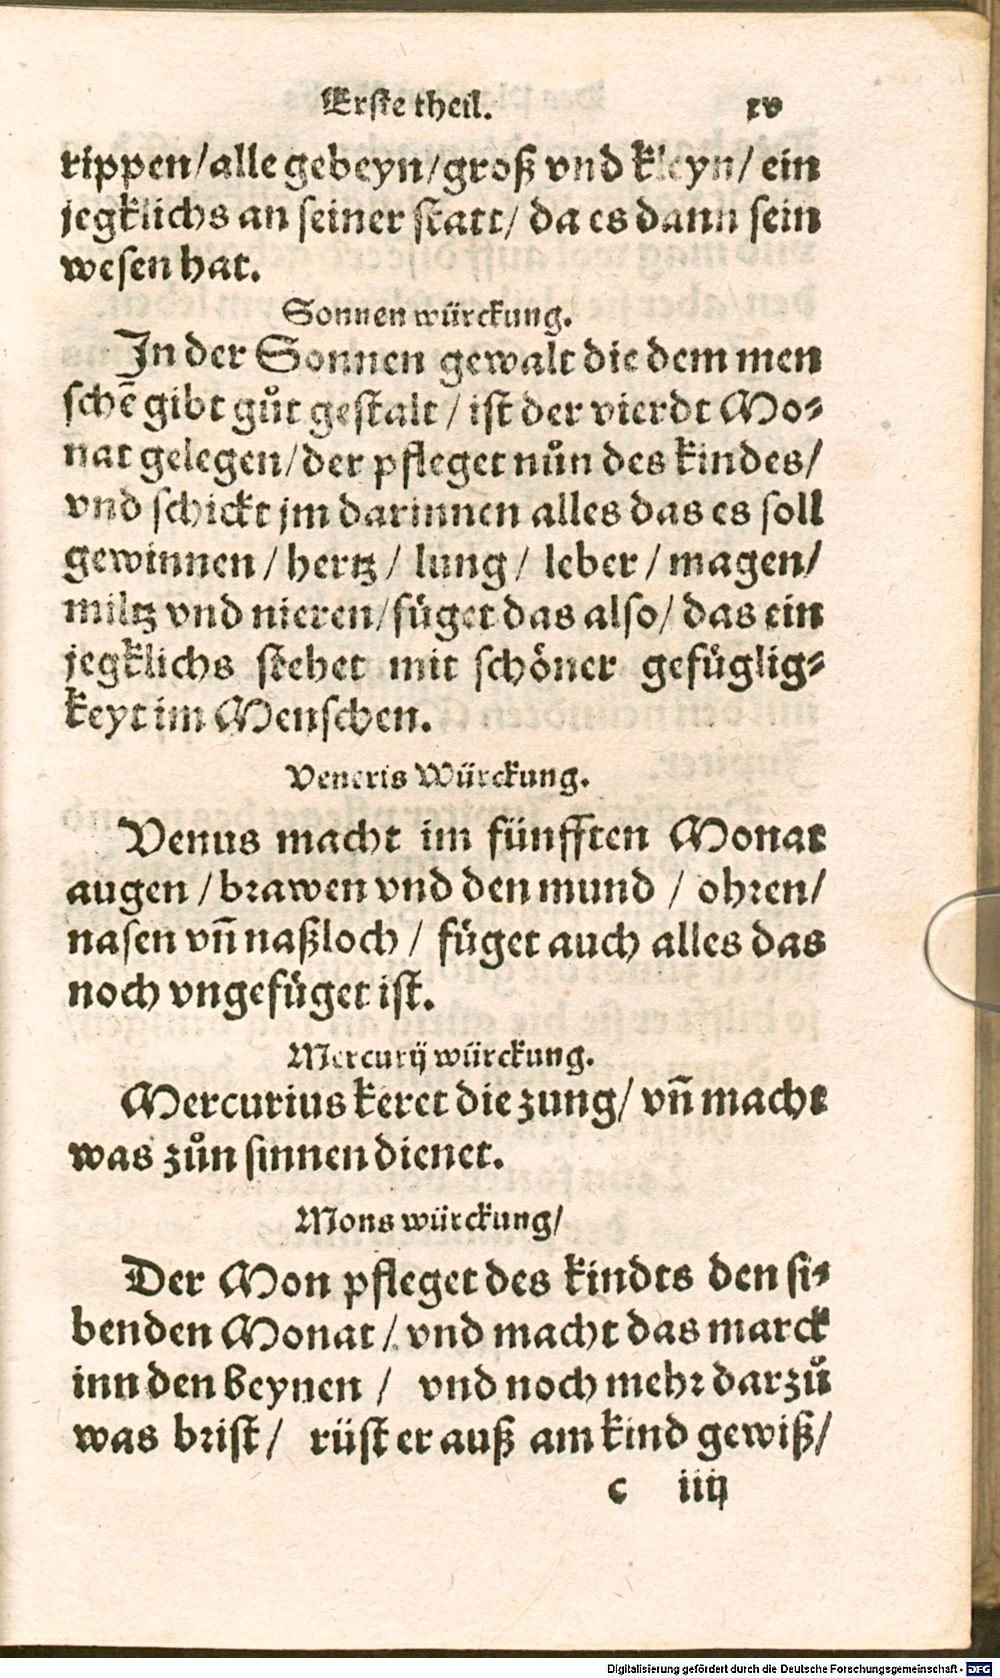 Erste theil. xv
rippen/alle gebeyn/groß vnd kleyn/ ein
jegklichs an seiner statt/ da es dann sein
wesen hat.
Sonnen würckung.
In der Sonnen gewalt die dem men
schē gibt gůt gestalt / ist der vierdt Mo⸗
nat gelegen/der pfleget nůn des kindes/
vnd schickt jm darinnen alles das es soll
gewinnen / hertz / lung / leber / magen/
miltz vnd nieren/füget das also/ das ein
jegklichs stehet mit schöner gefüglig⸗
keyt im Menschen.
Veneris Würckung.
Venus macht im fünfften Monat
augen / brawen vnd den mund / ohren/
nasen vñ naßloch / füget auch alles das
noch vngefüget ist.
Mercurij würckung.
Mercurius keret die zung/ vñ macht
was zůn sinnen dienet.
Mons würckung/
Der Mon pfleget des kindts den si⸗
benden Monat / vnd macht das marck
inn den beynen / vnd noch mehr darzů
was brist/ rüst er auß am kind gewiß/
c iiij
Digitalisierung gefördert durch die Deutsche Forschungsgemeinschaft - DFG